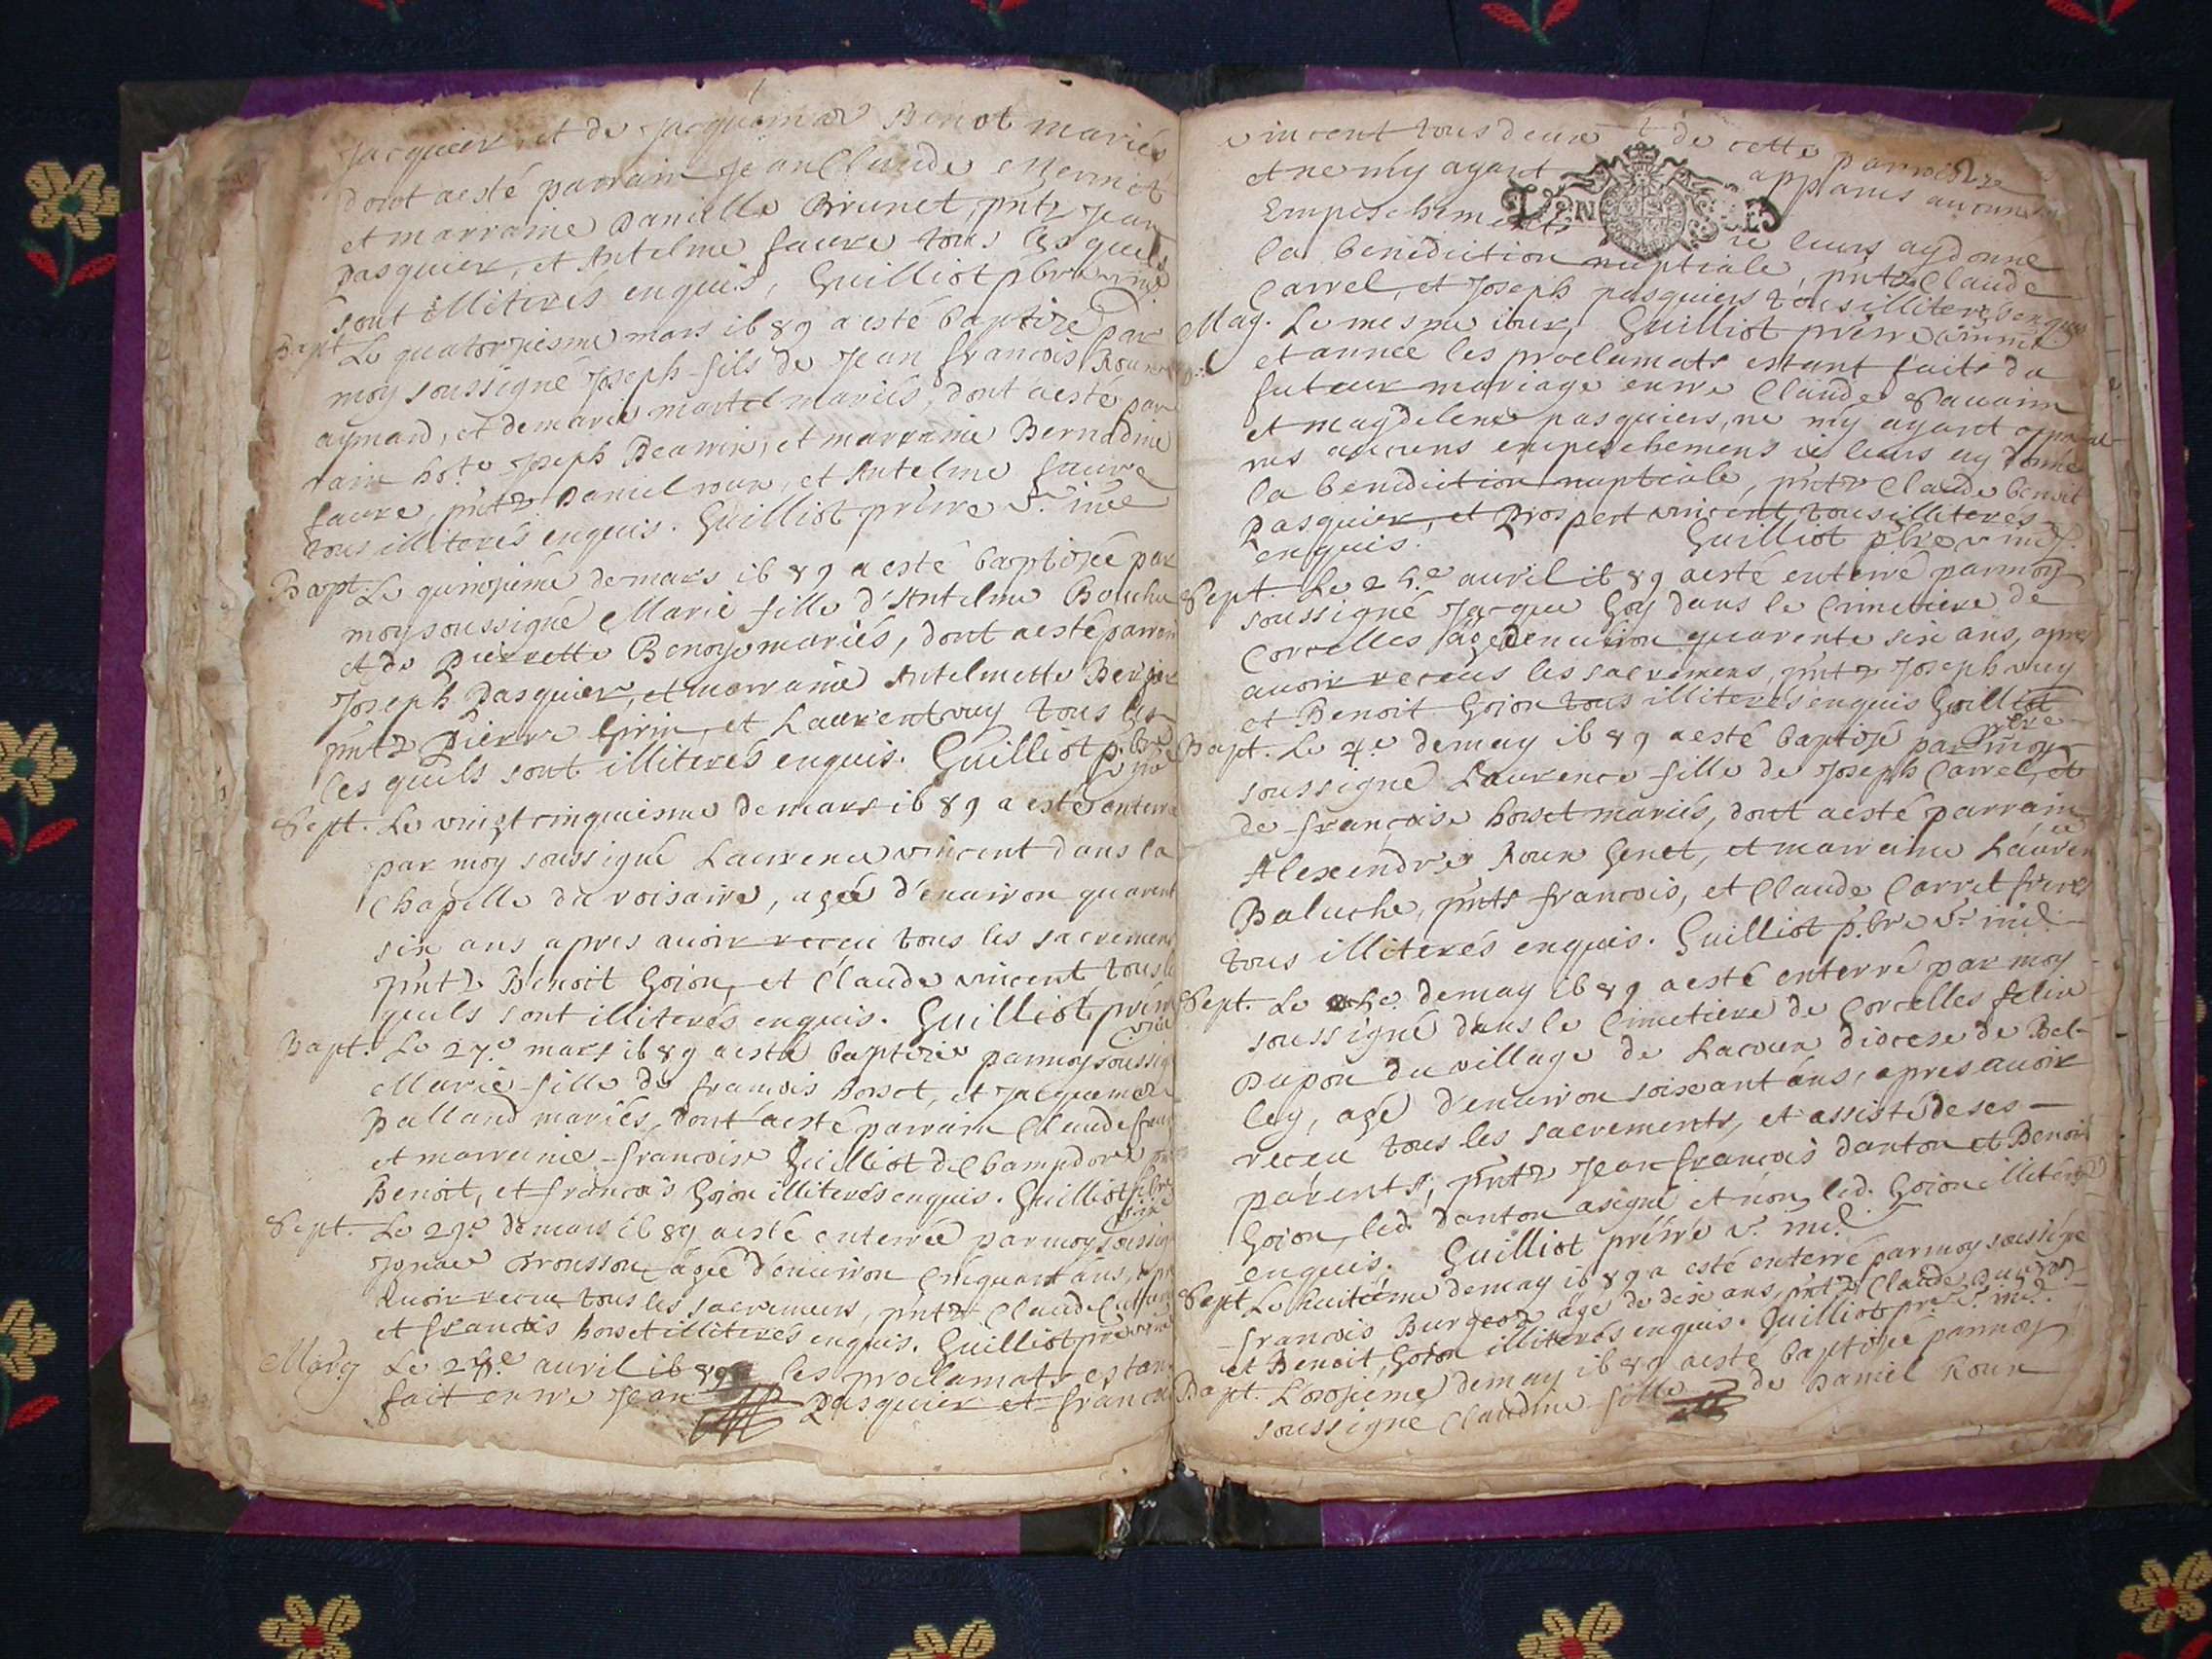 Jacquier, et de Jacquema Benot mariés
dont a esté parrain Jean Claude Mermet
et marraine Danielle Brunet, pntz Jean
Pasquier, et Antelme faure tous lesquels
sont illiterés enquis, Guilliot pbre
Bapt. Le quatorziesme mars 1689 a esté baptizé par
moy soussigné Joseph fils de Jean francois Roux
aymard, et de marie martel mariés, dont a esté par
rain ho.te Joseph Beauvin, et marraine Bernadine
faure, pntz. Daniel roux, et Antelme faure
tous illiterés enquis. Guilliot prêtre v.re ind
Bapt. Le quinziême de mars 1689 a esté baptizée par
moy soussigné Marie fille d'Antelme Bouche
et de Pierrette Benoye mariés, dont a esté parrain
Joseph Pasquier, et marraine Antelmette Berger
pntz Pierre Girin, et Laurent vuy tous les
lesquels sont illiterés enquis. Guilliot p.bre
Sept. Le vingtcinquiesme de mars 1689 a esté enterré
par moy soussigné Laurence vincent dans la
Chapelle du roisaire, agée d'enuiron quarent
six ans apres auoir receu tous les sacremens
pntz Benoit Goion, et Claude vincent tous les
quels sont illiterés enquis. Guilliot prêtre
Bapt. Le 27.e mars 1689 a esté baptizée par moy soussig
Marie fille de francois horset, et Jacquema
Balland mariés, dont a esté parrain Claude
et marreinie francoise Guilliot de Champdore
Benoit, et francois Goion illiterés enquis. Guilliot
Sept. Le 29.e de mars 1689 a esté enterrée par moy soussig
Brousson agée d'enuiron Cinquant ans, apr
Auoir receu tous les sacremens, pntz Claude
et francois horset illiterés enquis. Guilliot
Marg Le 25.e auril 1689 les proclamats estan
fait enrre Jean Pasquier et francoi
vincent tous deux de cette parroisse
et ne m'y ayant apparus aucuns
Empeschemens ie leurs ay donné
la benediction nuptiale, pntz Claude
Carrel, et Joseph pasquiers tous illiterés enquis
Mag. Le mesme iour, Guilliot prêtre
et année les proclamats estant faits du
futeur mariage enrre Claude
et magdelene pasquiers, ne m'y ayant appa
rus aucuns empeschemens ie leurs ay donné
la benediction nuptiale, pntz Claude benoit
Pasquier, et Prospert vincent tous illiterés
enquis. Guilliot pbre v ind.
Sept. Le 25.e auril 1689 a esté enterré par moy
soussigné Jacque Goy dans le Cimetiere de
Corcelles âgé denuiron quarente six ans, apres
auoir receus les sacremens, pntz Joseph vuy
et Benoit Goion tous illiterés enquis Guilliot
pbre
Bapt. Le 4.e de may 1689 a esté baptizé par moy
soussigné Laurence fille de Joseph Carrel, et
de françoise horset mariés, dont a esté parrain
Alexendre Roux Genet, et marreine Lauren
ce
Baluche, pnts francois, et Claude Carrel freres
tous illiterés enquis. Guilliot p.bre v.re ind.
Sept. Le 5.e de may 1689 a esté enterré par moy
soussigné dans le Cimetiere de Corcelles felix
Dupon du village de Lacoux diocese de Bel-
ley, agé d'enuiron soixant ans, apres auoir
receu tous les sacrements, et assisté de ses
parents, pntz Jean francois danton et Benoit
Goion, led. danton a signé et non led. Goion illiteré
enquis. Guilliot prêtre v. ind.
Sept. Le huitiéme de may 1689 a esté enterré par moy soussigné
francois Burgeod age de dix ans, pntz Claude
et Benoit Goion illiterés enquis. Guilliot pr.e v. ind.
Bapt. L'onzieme de may 1689 a esté baptizé par moy
soussigné Claudine fille de Daniel Roux